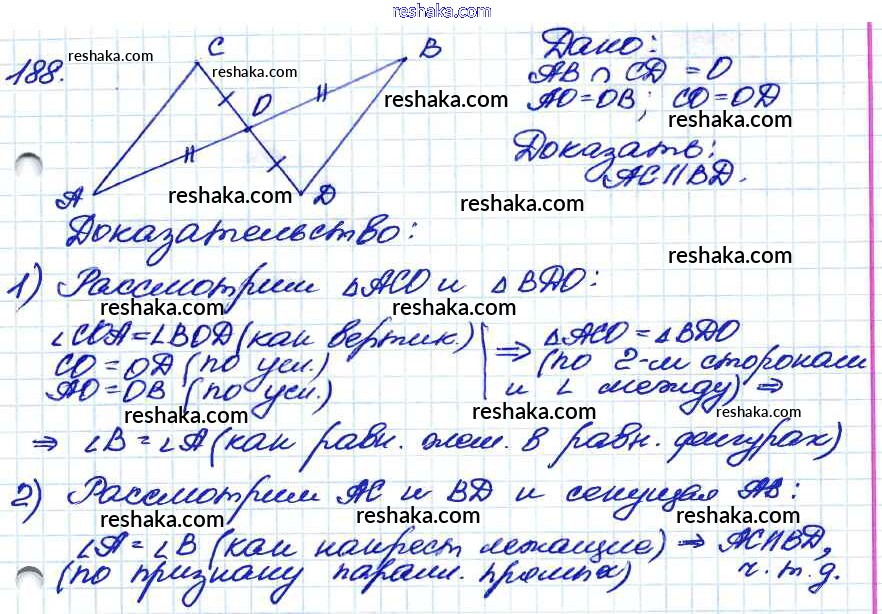 reshaka.com
188.
reshaka.com
C
B
reshaka.com
O
A
D
reshaka.com
Дано:
AB ∩ CD = O
AO = OB; CO = OD
reshaka.com
reshaka.com
Доказать:
AC || BD.
reshaka.com
Доказательство:
reshaka.com
1) Рассмотрим △ACO и △BDO:
reshaka.com reshaka.com
∠COA = ∠BOD (как вертик.) ⇒ △ACO = △BDO
CO = OD (по усл.) (по 2-м сторонам
AO = OB (по усл.) и ∠ между) ⇒
reshaka.com reshaka.com reshaka.com
⇒ ∠B = ∠A (как равн. элем. в равн. фигурах)
2) Рассмотрим AC и BD и секущая AB:
reshaka.com reshaka.com reshaka.com
∠A = ∠B (как накрест лежащие) ⇒ AC || BD,
(по признаку паралл. прямых) ч.т.д.